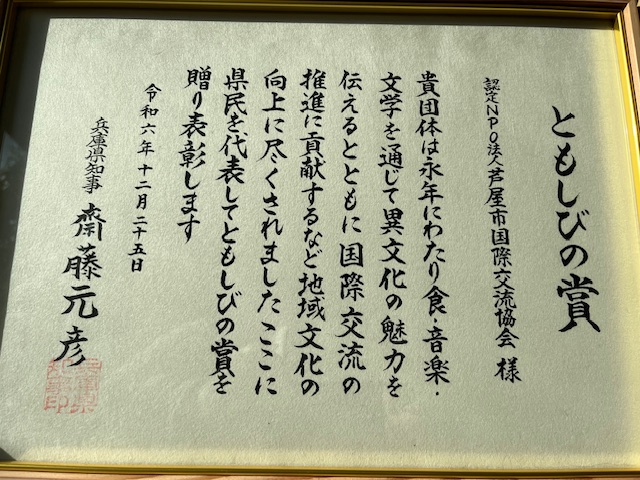 ともしびの賞
認定NPO法人芦屋市国際交流協会 様
貴団体は永年にわたり食・音楽・
文学を通じて異文化の魅力を
伝えるとともに国際交流の
推進に貢献するなど地域文化の
向上に尽くされました ここに
県民を代表してともしびの賞を
贈り表彰します
令和六年十二月二十五日
兵庫県知事 齋藤元彦